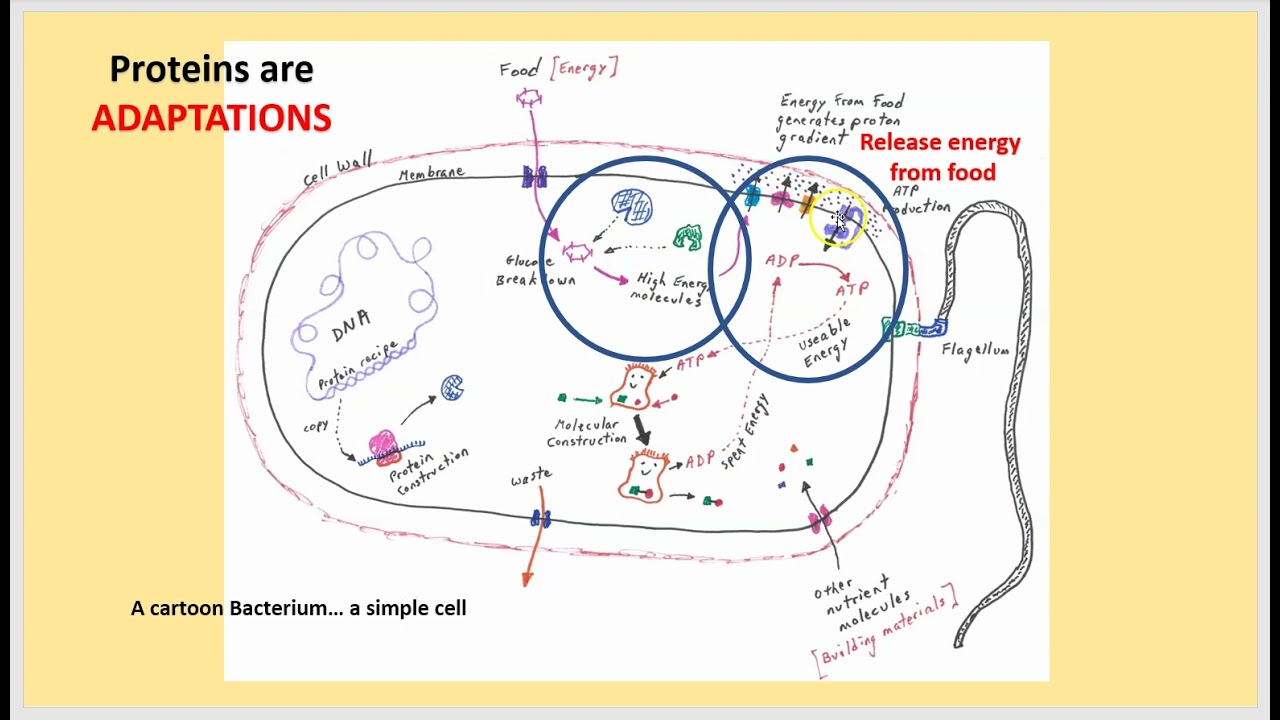 Proteins are
ADAPTATIONS
Food [Energy]
Energy From Food
generates proton
gradient
Release energy
from food
Cell Wall
Membrane
ATP
Production
Glucose
Breakdown
High Energy
molecules
ADP
ATP
DNA
Protein recipe
useable
Energy
Flagellum
ATP
copy
Molecular
Construction
Protein
Construction
ADP
spent Energy
waste
other
nutrient
molecules
[Building materials]
A cartoon Bacterium... a simple cell